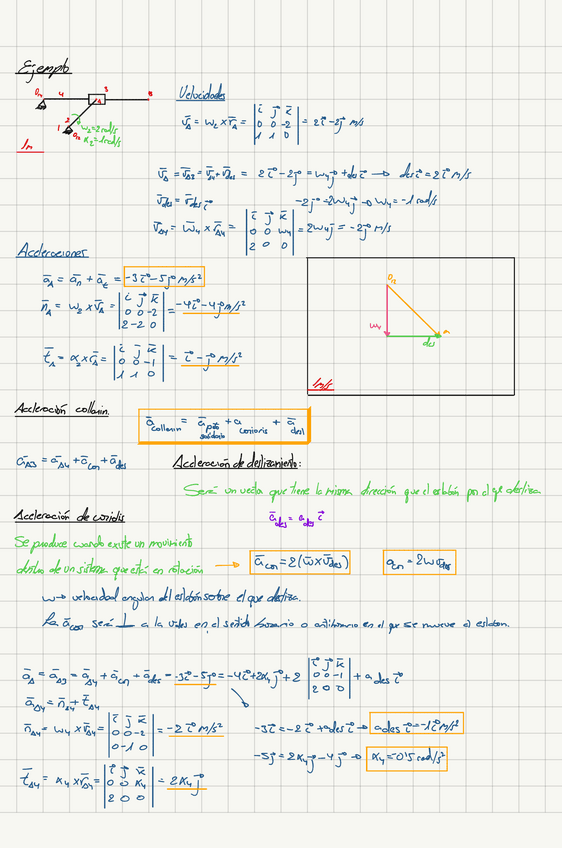 Ejemplo
O₄ 4 A 3 B
2
1 O₂ ω₂=2rad/s
α₂=1rad/s
1m
Velocidades
v̄_A = ω₂ x r̄_A = | i j k ; 0 0 -2 ; 1 1 0 | = 2i - 2j m/s
v̄_A = v̄_A3 = v̄_A4 + v̄_des = 2i - 2j = ω₄j + des i → des i = 2i m/s
v̄_des = v̄_des i
-2j = 2ω₄j → ω₄ = -1 rad/s
v̄_A4 = ω̄₄ x r̄_A4 = | i j k ; 0 0 ω₄ ; 2 0 0 | = 2ω₄j = -2j m/s
Aceleraciones
ā_A = ā_n + ā_t = -3i - 5j m/s²
n̄_A = ω₂ x v̄_A = | i j k ; 0 0 -2 ; 2 -2 0 | = -4i - 4j m/s²
t̄_A = α₂ x r̄_A = | i j k ; 0 0 -1 ; 1 1 0 | = i - j m/s²
O₂
ω₄
a
des
1m/s
Aceleración collarín.
ā collarín = ā pto + a corioris + ā desl
Aceleración de deslizamiento:
ā_A3 = ā_A4 + ā_cor + ā_des
Será un vector que tiene la misma dirección que el eslabón por el que desliza.
ā_des = a_des i
Aceleración de coriolis
Se produce cuando existe un movimiento
dentro de un sistema que está en rotación → ā_cor = 2(ω̄ x v̄_des) a_cor = 2ω v_des
ω → velocidad angular del eslabón sobre el que desliza.
la ā_cor será ⊥ a la v_des en el sentido horario o antihorario en el que se mueve el eslabon.
ā_A = ā_A3 = ā_A4 + ā_cor + ā_des = -3i - 5j = -4i + 2α₄j + 2 | i j k ; 0 0 -1 ; 2 0 0 | + a des i
ā_A4 = n̄_A4 + t̄_A4
n̄_A4 = ω₄ x v̄_A4 = | i j k ; 0 0 -2 ; 0 -1 0 | = -2i m/s²
-3i = -2i + ades i → ades i = -1i m/s²
-5j = 2α₄j - 4j → α₄ = -0'5 rad/s²
t̄_A4 = α₄ x r̄_A4 = | i j k ; 0 0 α₄ ; 2 0 0 | = 2α₄j